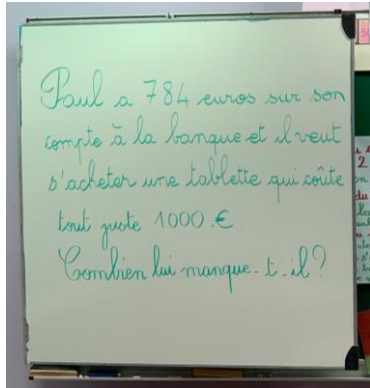 Paul a 784 euros sur son
compte à la banque et il veut
s'acheter une tablette qui coûte
tout juste 1000 €.
Combien lui manque-t-il?